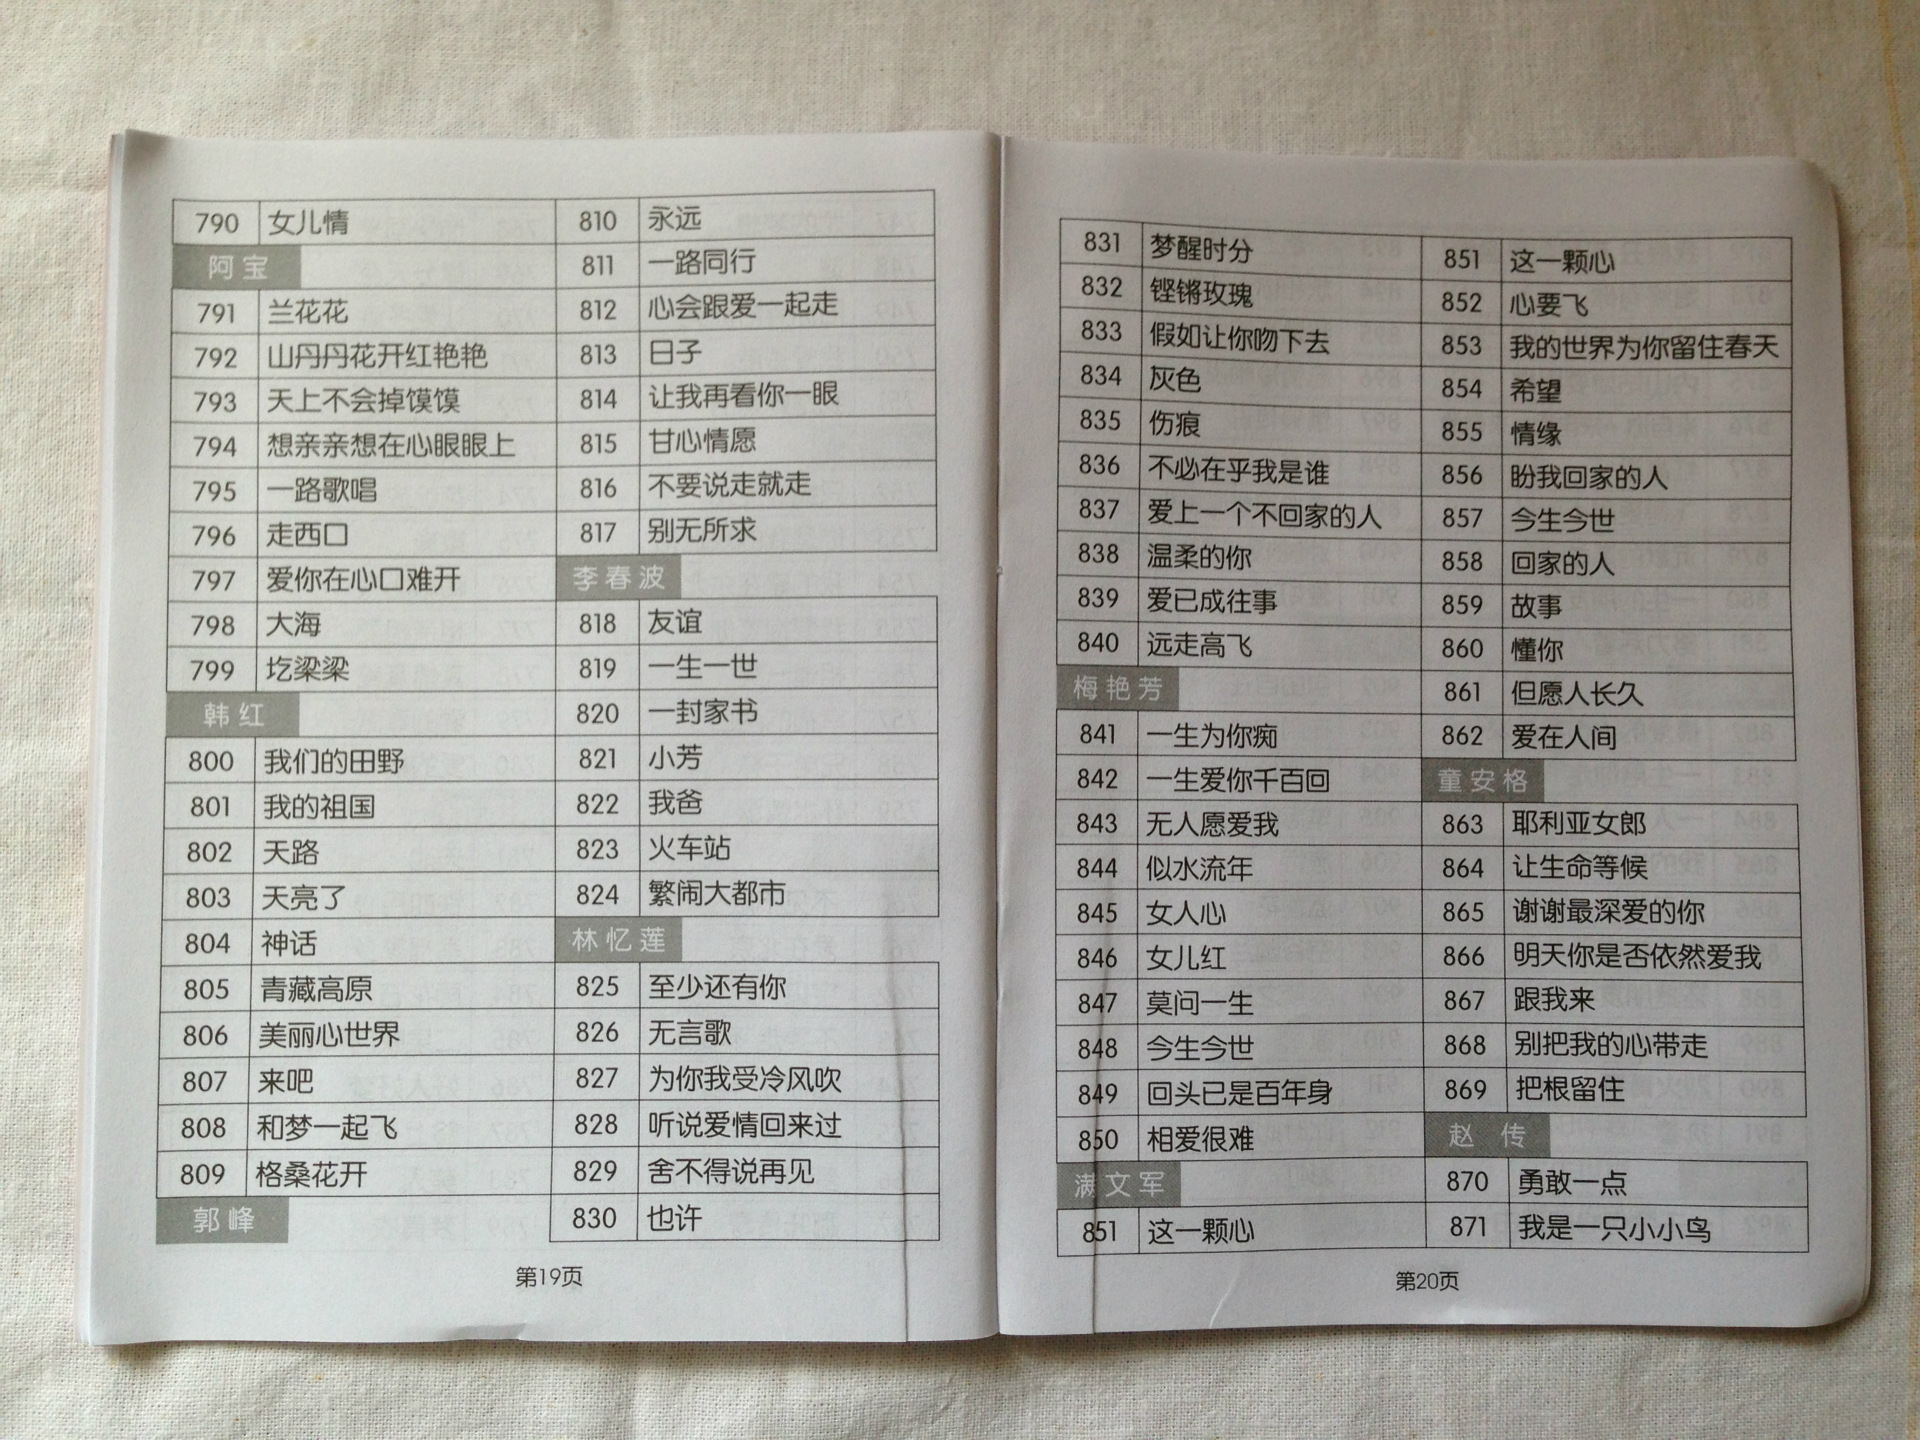 790 女儿情
阿宝
791 兰花花
792 山丹丹花开红艳艳
793 天上不会掉馍馍
794 想亲亲想在心眼眼上
795 一路歌唱
796 走西口
797 爱你在心口难开
798 大海
799 圪梁梁
韩红
800 我们的田野
801 我的祖国
802 天路
803 天亮了
804 神话
805 青藏高原
806 美丽心世界
807 来吧
808 和梦一起飞
809 格桑花开
郭峰
810 永远
811 一路同行
812 心会跟爱一起走
813 日子
814 让我再看你一眼
815 甘心情愿
816 不要说走就走
817 别无所求
李春波
818 友谊
819 一生一世
820 一封家书
821 小芳
822 我爸
823 火车站
824 繁闹大都市
林忆莲
825 至少还有你
826 无言歌
827 为你我受冷风吹
828 听说爱情回来过
829 舍不得说再见
830 也许
第19页
831 梦醒时分
832 铿锵玫瑰
833 假如让你吻下去
834 灰色
835 伤痕
836 不必在乎我是谁
837 爱上一个不回家的人
838 温柔的你
839 爱已成往事
840 远走高飞
梅艳芳
841 一生为你痴
842 一生爱你千百回
843 无人愿爱我
844 似水流年
845 女人心
846 女儿红
847 莫问一生
848 今生今世
849 回头已是百年身
850 相爱很难
满文军
851 这一颗心
851 这一颗心
852 心要飞
853 我的世界为你留住春天
854 希望
855 情缘
856 盼我回家的人
857 今生今世
858 回家的人
859 故事
860 懂你
861 但愿人长久
862 爱在人间
童安格
863 耶利亚女郎
864 让生命等候
865 谢谢最深爱的你
866 明天你是否依然爱我
867 跟我来
868 别把我的心带走
869 把根留住
赵传
870 勇敢一点
871 我是一只小小鸟
第20页